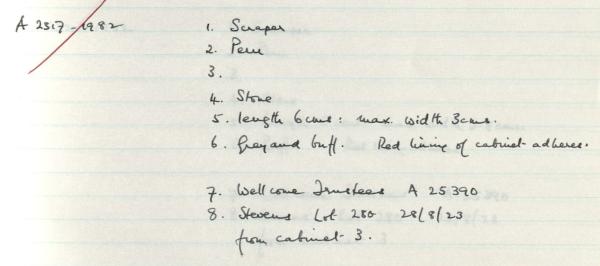 A 2317-1982
1. Scraper
2. Peru
3.
4. Stone
5. length 6cms: max. width 3cms.
6. Grey and buff. Red lining of cabinet adheres.
7. Wellcome Trustees A 25390
8. Stevens Lot 280 28/8/23
from cabinet 3.